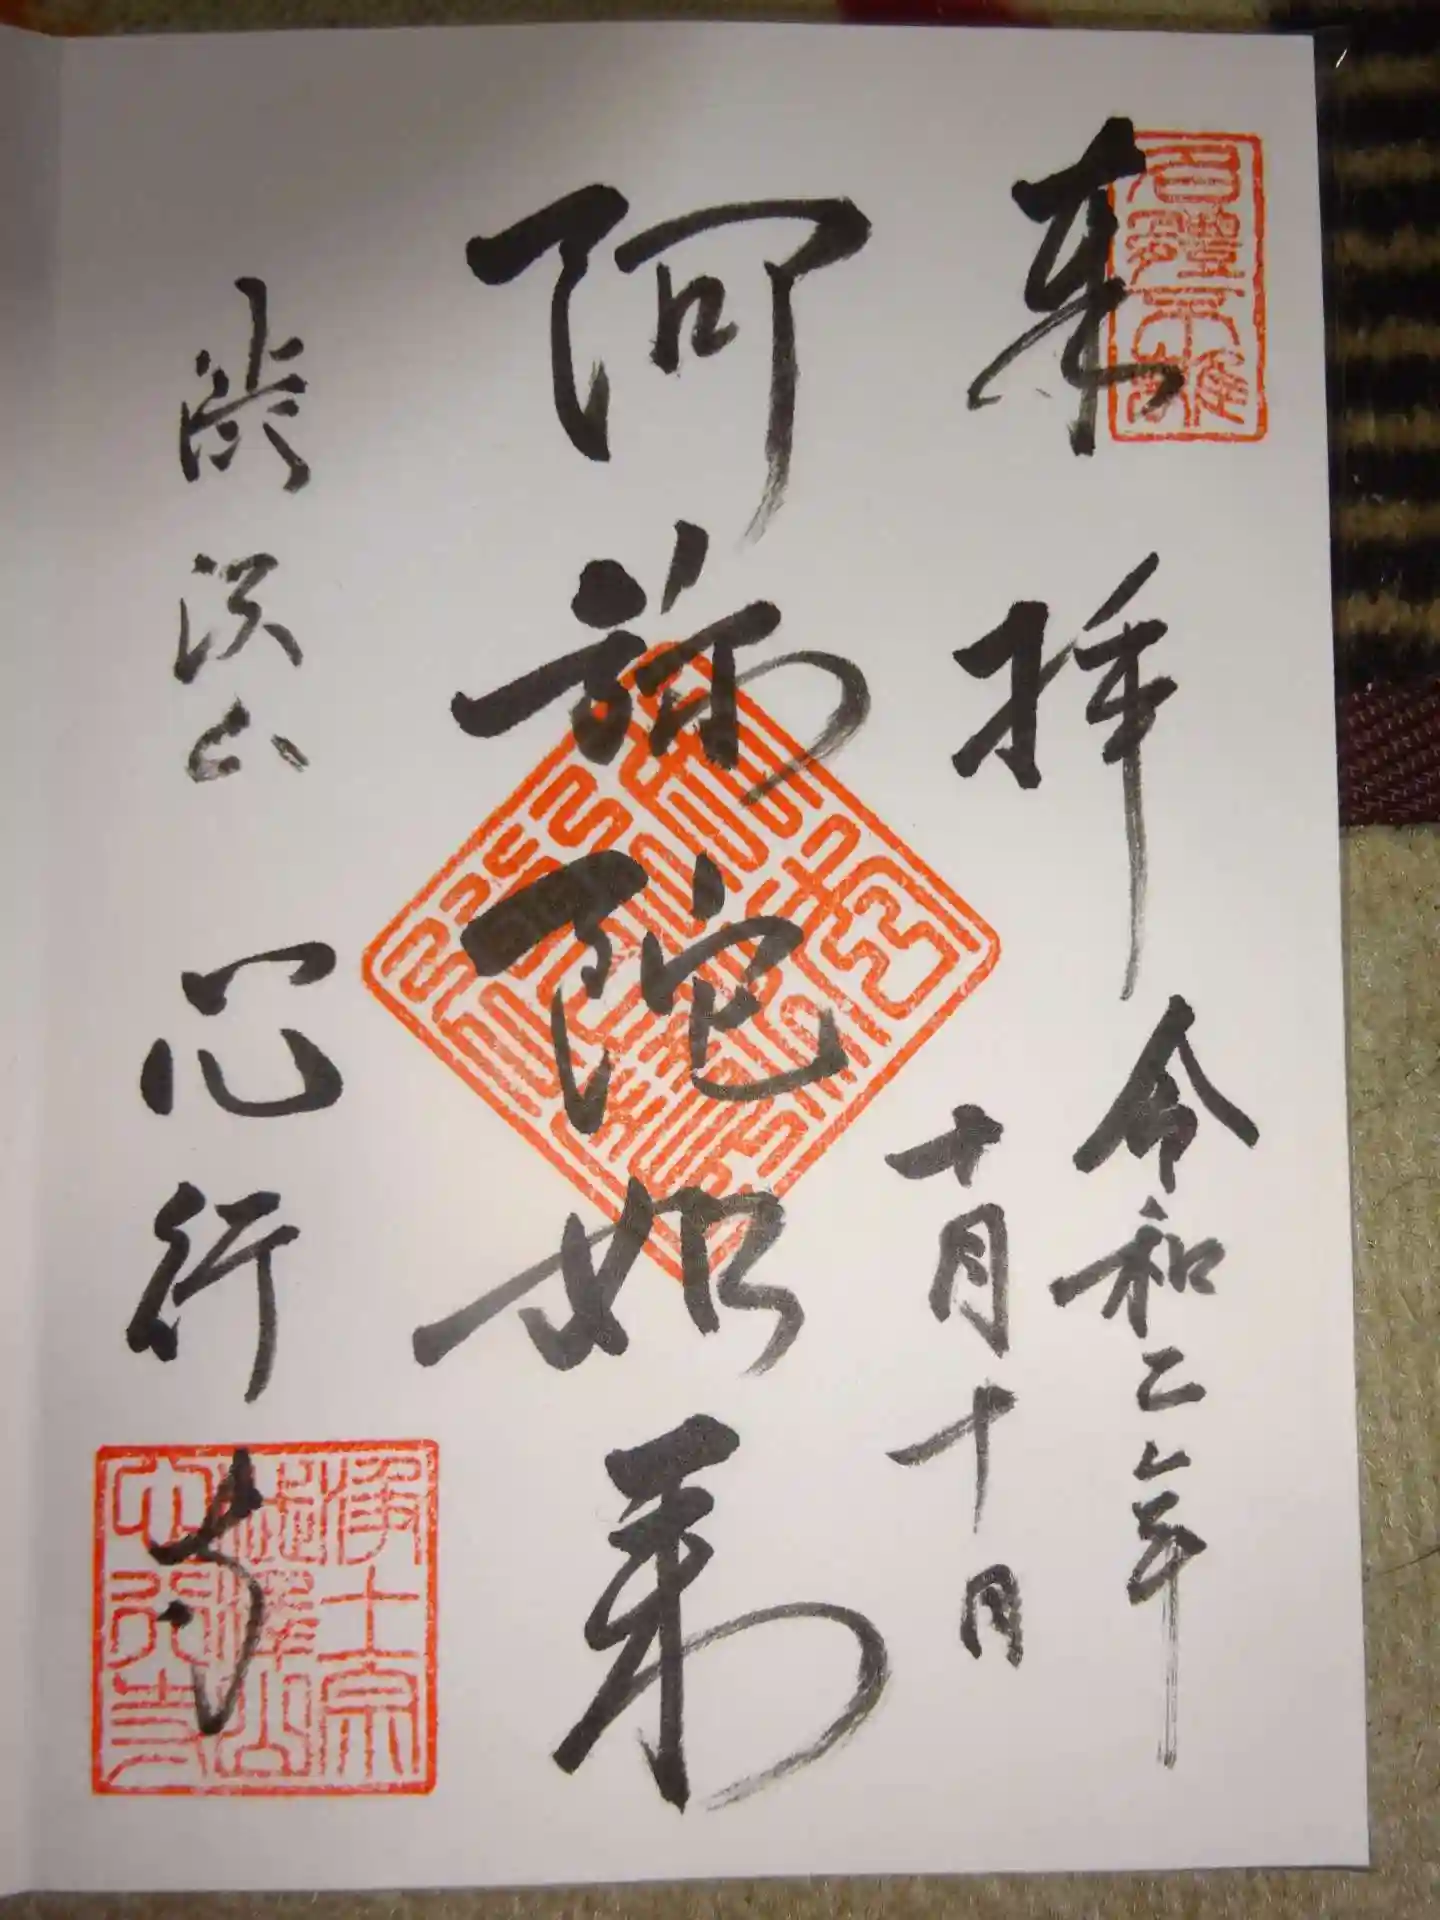 名體不離
奉拝
令和二年
十月十日
阿弥陀如来
渋沢山
心行寺
浄土宗
澁澤山
心行寺